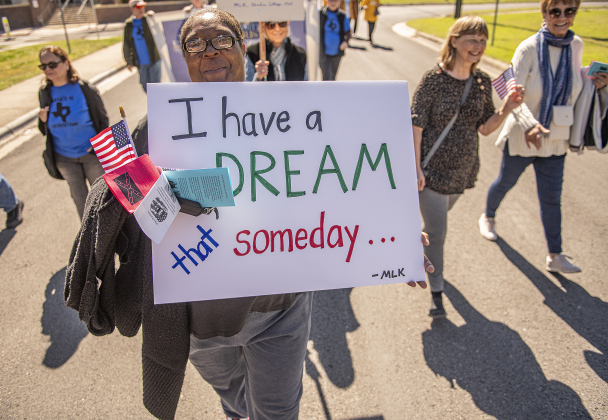 I have a
DREAM
that someday...
- MLK